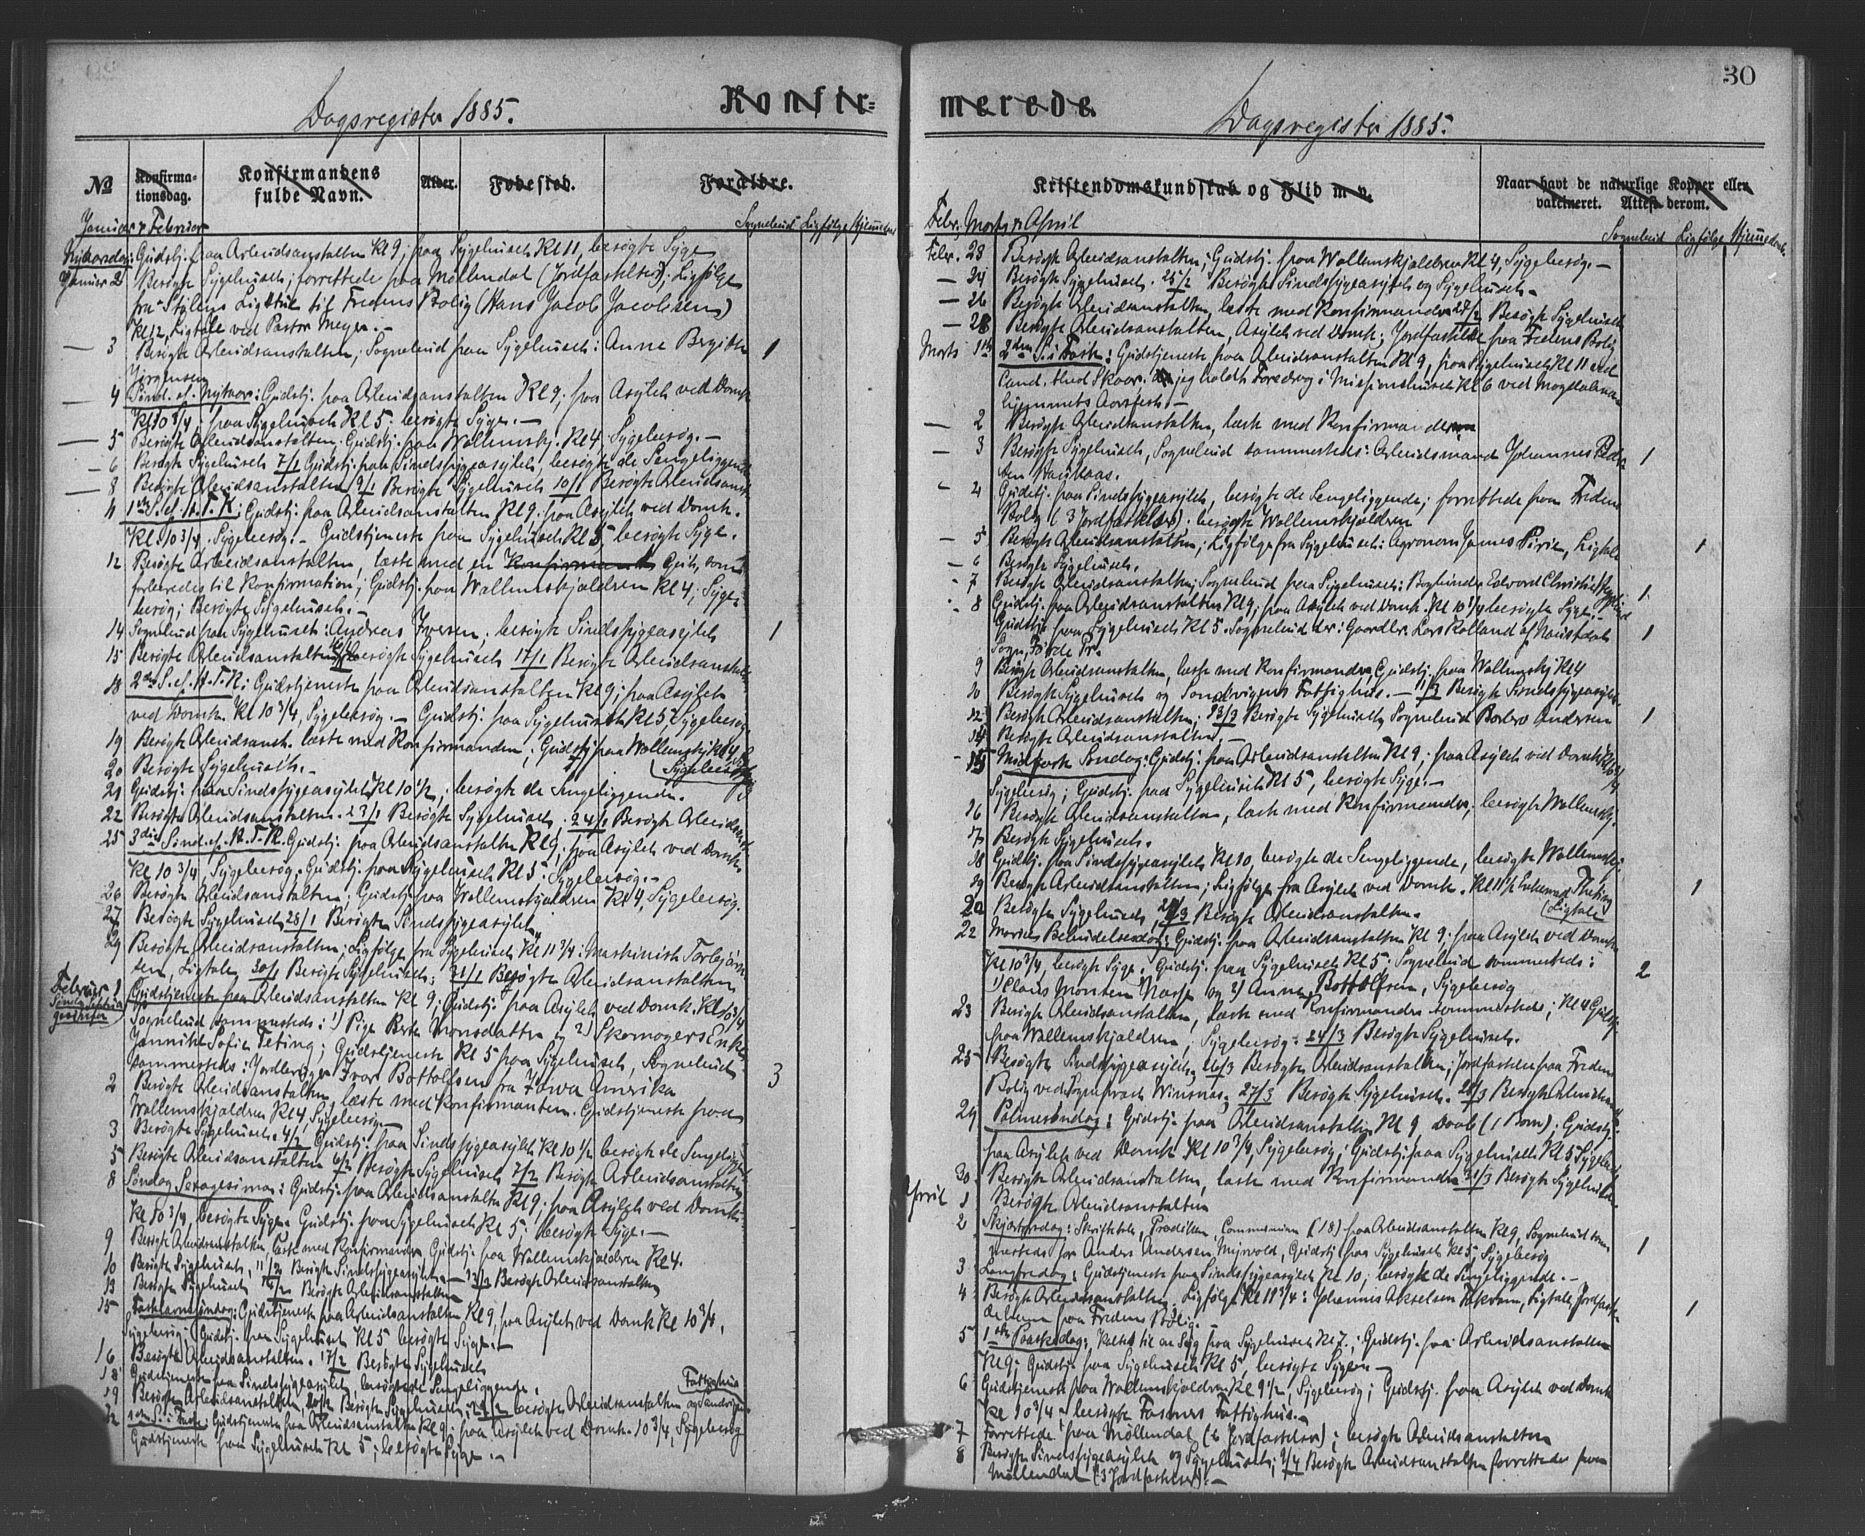 Dagsregister 1885.
Konfir=
No
Konfirma-
tionsdag.
Konfirmandens
fulde Navn.
Alder.
Fødested.
Forældre.
Januar & Februar
Sognebud Ligfølge Hjemmedaab
Nytaarsdag: Gudstj. paa Arbeidsanstalten Kl 9; paa Sygehuset Kl 11, besøgte Syge
Januar 2 Besøgte Sygehuset; forrettede paa Møllendal (Jordfæstelse); Ligfølge
fra Stiftens Ligstue til Fredens Bolig (Hans Jacob Jacobsen)
Kl 12, Ligtale ved Pastor Meyer.-
— 3 Besøgte Arbeidsanstalten; Sognebud paa Sygehuset: Anne Birgitte 1
Jørgensen
— 4 Sønd. ef. Nytaar: Gudstj. paa Arbeidsanstalten Kl 9; paa Asylet ved Domk.
Kl 10 3/4; paa Sygehuset Kl 5; besøgte Syge.-
— 5 Besøgte Arbeidsanstalten; Gudstj. paa Wallemskj. Kl 4; Sygebesøg.-
— 6 Besøgte Sygehuset 7/1 Gudstj. paa Sindssygeasylet, besøgte de Sengeliggende
— 8 Besøgte Arbeidsanstalten 9/1 Besøgte Sygehuset 10/1 Besøgte Arbeidsanst.
11 1ste S. ef. H. T. K.; Gudstj. paa Arbeidsanstalten Kl 9; paa Asylet ved Domk.
Kl 10 3/4, Sygebesøg.- Gudstjeneste paa Sygehuset Kl 5, besøgte Syge.
12 Besøgte Arbeidsanstalten, læste med en Konfirmant Gut, som
forberedes til Konfirmation; Gudstj. paa Wallemskjældren Kl 4; Syge-
besøg; Besøgte Sygehuset.-
14 Sognebud paa Sygehuset: Andreas Iversen; besøgte Sindssygeasylet 1
15 Besøgte Arbeidsanstalten 16/1 besøgte Sygehuset 17/1 Besøgte Arbeidsanstalten
18 2den S. ef. H. T. K.; Gudstjeneste paa Arbeidsanstalten Kl 9; paa Asylet
ved Domk. Kl 10 3/4, Sygebesøg.- Gudstj. paa Sygehuset Kl 5; Sygebesøg
19 Besøgte Arbeidsanst. læste med Konfirmanden; Gudstj. paa Wallemskj. Kl 4,
Sygebesøg
20 Besøgte Sygehuset.-
21 Gudstj. paa Sindssygeasylet Kl 10 1/2, besøgte de Sengeliggende.
22 Besøgte Arbeidsanstalten. 23/1 Besøgte Sygehuset. 24/1 Besøgte Arbeidsanst.
25 3die Sønd. ef. H. T. K. Gudstj. paa Arbeidsanstalten Kl 9, paa Asylet ved Domk.
Kl 10 3/4, Sygebesøg. Gudstj. paa Sygehuset Kl 5. Sygebesøg.-
26 Besøgte Arbeidsanstalten; Gudstj. paa Wallemskjældren Kl 4, Sygebesøg.
27 Besøgte Sygehuset 28/1 Besøgte Sindssygeasylet
29 Besøgte Arbeidsanstalten; Ligfølge fra Sygehuset Kl 11 3/4: Maskinist Torbjørn-
sen, Ligtale 30/1 Besøgte Sygehuset; 31/1 Besøgte Arbeidsanstalten
Februar 1 Gudstjeneste paa Arbeidsanstalten Kl 9; Gudstj. paa Asylet ved Domk. Kl 10 3/4
Sognebud sammesteds: 1) Pige Berte Monsdatter og 2) Skomagers Enke
Jannikke Sofie Teting; Gudstjeneste Kl 5 paa Sygehuset, Sognebud
sammesteds: Jordbruger Ivar Bottolfsen fra Jowa Amerika 3
2 Besøgte Arbeidsanstalten, læste med Konfirmanten. Gudstjeneste paa
Wallemskjældren Kl 4, Sygebesøg.
3 Besøgte Sygehuset. 4/2 Gudstj. paa Sindssygeasylet Kl 10 1/2 besøgte de Sengeliggende
5 Besøgte Arbeidsanstalten 6/2 Besøgte Sygehuset 7/2 Besøgte Arbeidsanstalten
8 Søndag Sexagesima: Gudstj. paa Arbeidsanstalten Kl 9; paa Asylet ved Domk.
Kl 10 3/4, besøgte Syge. Gudstj. paa Sygehuset Kl 5; besøgte Syge.-
9 Besøgte Arbeidsanstalten, læste med Konfirmanden, Gudstj. paa Wallemskjældren Kl 4.
10 Besøgte Sygehuset, 11/2 Besøgte Sindssygeasylet.- 12/2 Besøgte Arbeidsanstalten
13 Besøgte Sygehuset 14/2 Besøgte Arbeidsanstalten
15 Fastelavnssøndag: Gudstjeneste paa Arbeidsanstalten Kl 9, paa Asylet ved Domk Kl 10 3/4,
Sygebesøg; Gudstj. paa Sygehuset Kl 5 besøgte Syge.-
16 Besøgte Arbeidsanstalten. 17/2 Besøgte Sygehuset
18 Gudstjeneste paa Sindssygeasylet, besøgte de Sengeliggende.
19 Besøgte Arbeidsanstalten, 20/2 Besøgte Sygehuset; 21/2 besøgte Arbeidsanstalten og Sandvigens
Fattighus
22 1ste S. i Faste: Gudstjeneste paa Arbeidsanstalten Kl 9; paa Asylet ved Domk. 10 3/4, Sygebesøg
Gudstjeneste paa Sygehuset Kl 5; besøgte Syge.-
merede.
Dagsregister 1885.
30
Kristendomskundskab og Flid m. v.
Naar havt de naturlige Kopper eller
vakcineret. Attest derom.
Febr., Marts & April
Sognebud Ligfølge Hjemmedaab.
Febr. 23 Besøgte Arbeidsanstalten; Gudstj. paa Wallemskjældren Kl 4, Sygebesøg.-
— 24 Besøgte Sygehuset. 25/2 Besøgte Sindssygeasylet og Sygehuset.-
— 26 Besøgte Arbeidsanstalten, læste med Konfirmanden 27/2 Besøgte Sygehuset
— 28 Besøgte Arbeidsanstalten, Asylet ved Domk; Jordfæstelse paa Fredens Bolig
Marts 1ste 2den S. i Faste: Gudstjeneste paa Arbeidsanstalten Kl 9, paa Sygehuset Kl 11 ved
Cand. theol Skaar. jeg holdt Foredrag i Missionshuset Kl 6 ved Magdalena
hjemmets Aarsfest.-
— 2 Besøgte Arbeidsanstalten, læste med Konfirmanderne
— 3 Besøgte Sygehuset, Sognebud sammesteds: Arbeidsmand Johannes Peder 1
sen Haukaas.
- 4 Gudstj. paa Sindssygeasylet, besøgte de Sengeliggende; forrettede paa Fredens
Bolig (3 Jordfæstelser); besøgte Wallemskjældren
— 5 Besøgte Arbeidsanstalten; Ligfølge fra Sygehuset: Agronom James Pirie, Ligtale 1
— 6 Besøgte Sygehuset.
- 7 Besøgte Arbeidsanstalten; Sognebud paa Sygehuset: Bogbinder Edvard Christie 1
- 8 Gudstj. paa Arbeidsanstalten Kl 9, paa Asylet ved Domk. Kl 10 3/4 besøgte Syge.-
Gudstj. paa Sygehuset Kl 5. Sognebud der: Gaardbr. Lars Kolland af Naustdal 1
Sogn, Førde Pr.
9 Besøgte Arbeidsanstalten, læste med Konfirmanden, Gudstj. paa Wallemskj Kl 4
10 Besøgte Sygehuset og Sandvigens Fattighus.- 11/3 Besøgte Sindssygeasylet
12 Besøgte Arbeidsanstalten; 13/3 Besøgte Sygehuset, Sognebud Barbro Andersen 1
14 Besøgte Arbeidsanstalten.-
- 15 Midfaste Søndag: Gudstj. paa Arbeidsanstalten Kl 9; paa Asylet ved Domk Kl 10 3/4
Sygebesøg; Gudstj. paa Sygehuset Kl 5, besøgte Syge.-
16 Besøgte Arbeidsanstalten, læste med Konfirmanden, besøgte Wallemskj.
17 Besøgte Sygehuset.
18 Gudstj. paa Sindssygeasylet Kl 10, besøgte de Sengeliggende, besøgte Wallemskj.
19 Besøgte Arbeidsanstalten; Ligfølge fra Asylet ved Domk. Kl 11 1/2 Enkemad. Theting 1
(Ligtale
20 Besøgte Sygehuset, 21/3 Besøgte Arbeidsanstalten.
22 Mariæ Bebudelsesdag: Gudstj. paa Arbeidsanstalten Kl 9. paa Asylet ved Domk.
Kl 10 3/4, besøgte Syge. Gudstj. paa Sygehuset Kl 5. Sognebud sammesteds: 2
1) Claus Monsen Næsse og 2) Anne Bottolfsen, Sygebesøg
23 Besøgte Arbeidsanstalten, læste med Konfirmanden sammesteds; Kl 4 Gudstj.
paa Wallemskjældren; Sygebesøg. 24/3 Besøgte Sygehuset.
25 Besøgte Sindssygeasylet, 26/3 Besøgte Arbeidsanstalten; Jordfæstelse paa Fredens
Bolig ved Sogneprest Winsnæs; 27/3 Besøgte Sygehuset. 28/3 Besøgte Arbeidsanst.
29 Palmesøndag: Gudstj. paa Arbeidsanstalten Kl 9 Daab (1 Barn); Gudstj.
paa Asylet ved Domk Kl 10 3/4, Sygebesøg; Gudstj. paa Sygehuset Kl 5 Sygebesøg
30 Besøgte Arbeidsanstalten, læste med Konfirmanden 31/3 Besøgte Sygehuset
April 1 Besøgte Arbeidsanstalten
2 Skjærtorsdag: Skriftetale, Prædiken, Communion (18) paa Arbeidsanstalten Kl 9, Sognebud sam-
mesteds for Anders Andersen Mijrvold, Gudstj. paa Sygehuset Kl 5, Sygebesøg 1
3 Langfredag: Gudstjeneste paa Sindssygeasylet Kl 10; besøgte de Sengeliggende.-
4 Besøgte Arbeidsanstalten, Ligfølge Kl 11 3/4: Johannis Akselsen Ligtale, Jordfæst- 1
paa Fredens Bolig.-
5 1ste Paaskedag: Kaldet til en Syg paa Sygehuset Kl 7. Gudstj. paa Arbeidsanstalten
Kl 9. Gudstj. paa Sygehuset Kl 5, besøgte Sygen.-
6 Gudstjeneste paa Wallemskjældren Kl 9 1/2, Sygebesøg; Gudstj. paa Asylet ved Domk
Kl 10 3/4 besøgte Fattighus.
7 Forrettede paa Møllendal (6 Jordfæstelser); besøgte Arbeidsanstalten
8 Besøgte Sindssygeasylet og Sygehuset; 9/4 Besøgte Arbeidsanstalten forrettede paa
Møllendal (3 Jordfæstelser).-